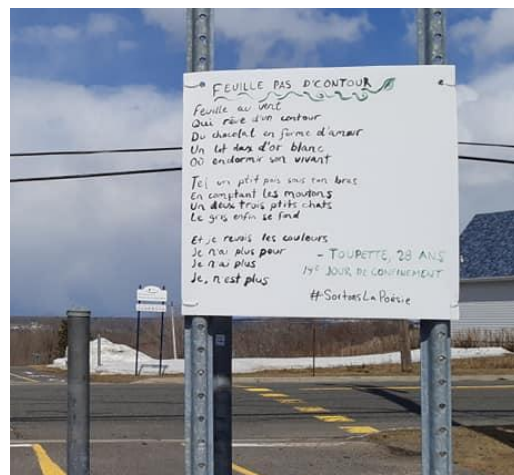 FEUILLE PAS D'CONTOUR
Feuille au vent
Qui rêve d'un contour
Du chocolat en forme d'amour
Un lit doux d'or blanc
Où endormir son vivant
Tel un ptit pois sous ton bras
En comptant les moutons
Un deux trois ptits chats
Le gris enfin se fond
Et je revois les couleurs
Je n'ai plus peur
Je n'ai plus
Je, n'est plus
- TOUPETTE, 28 ANS
19e JOUR DE CONFINEMENT
#SortonsLaPoésie